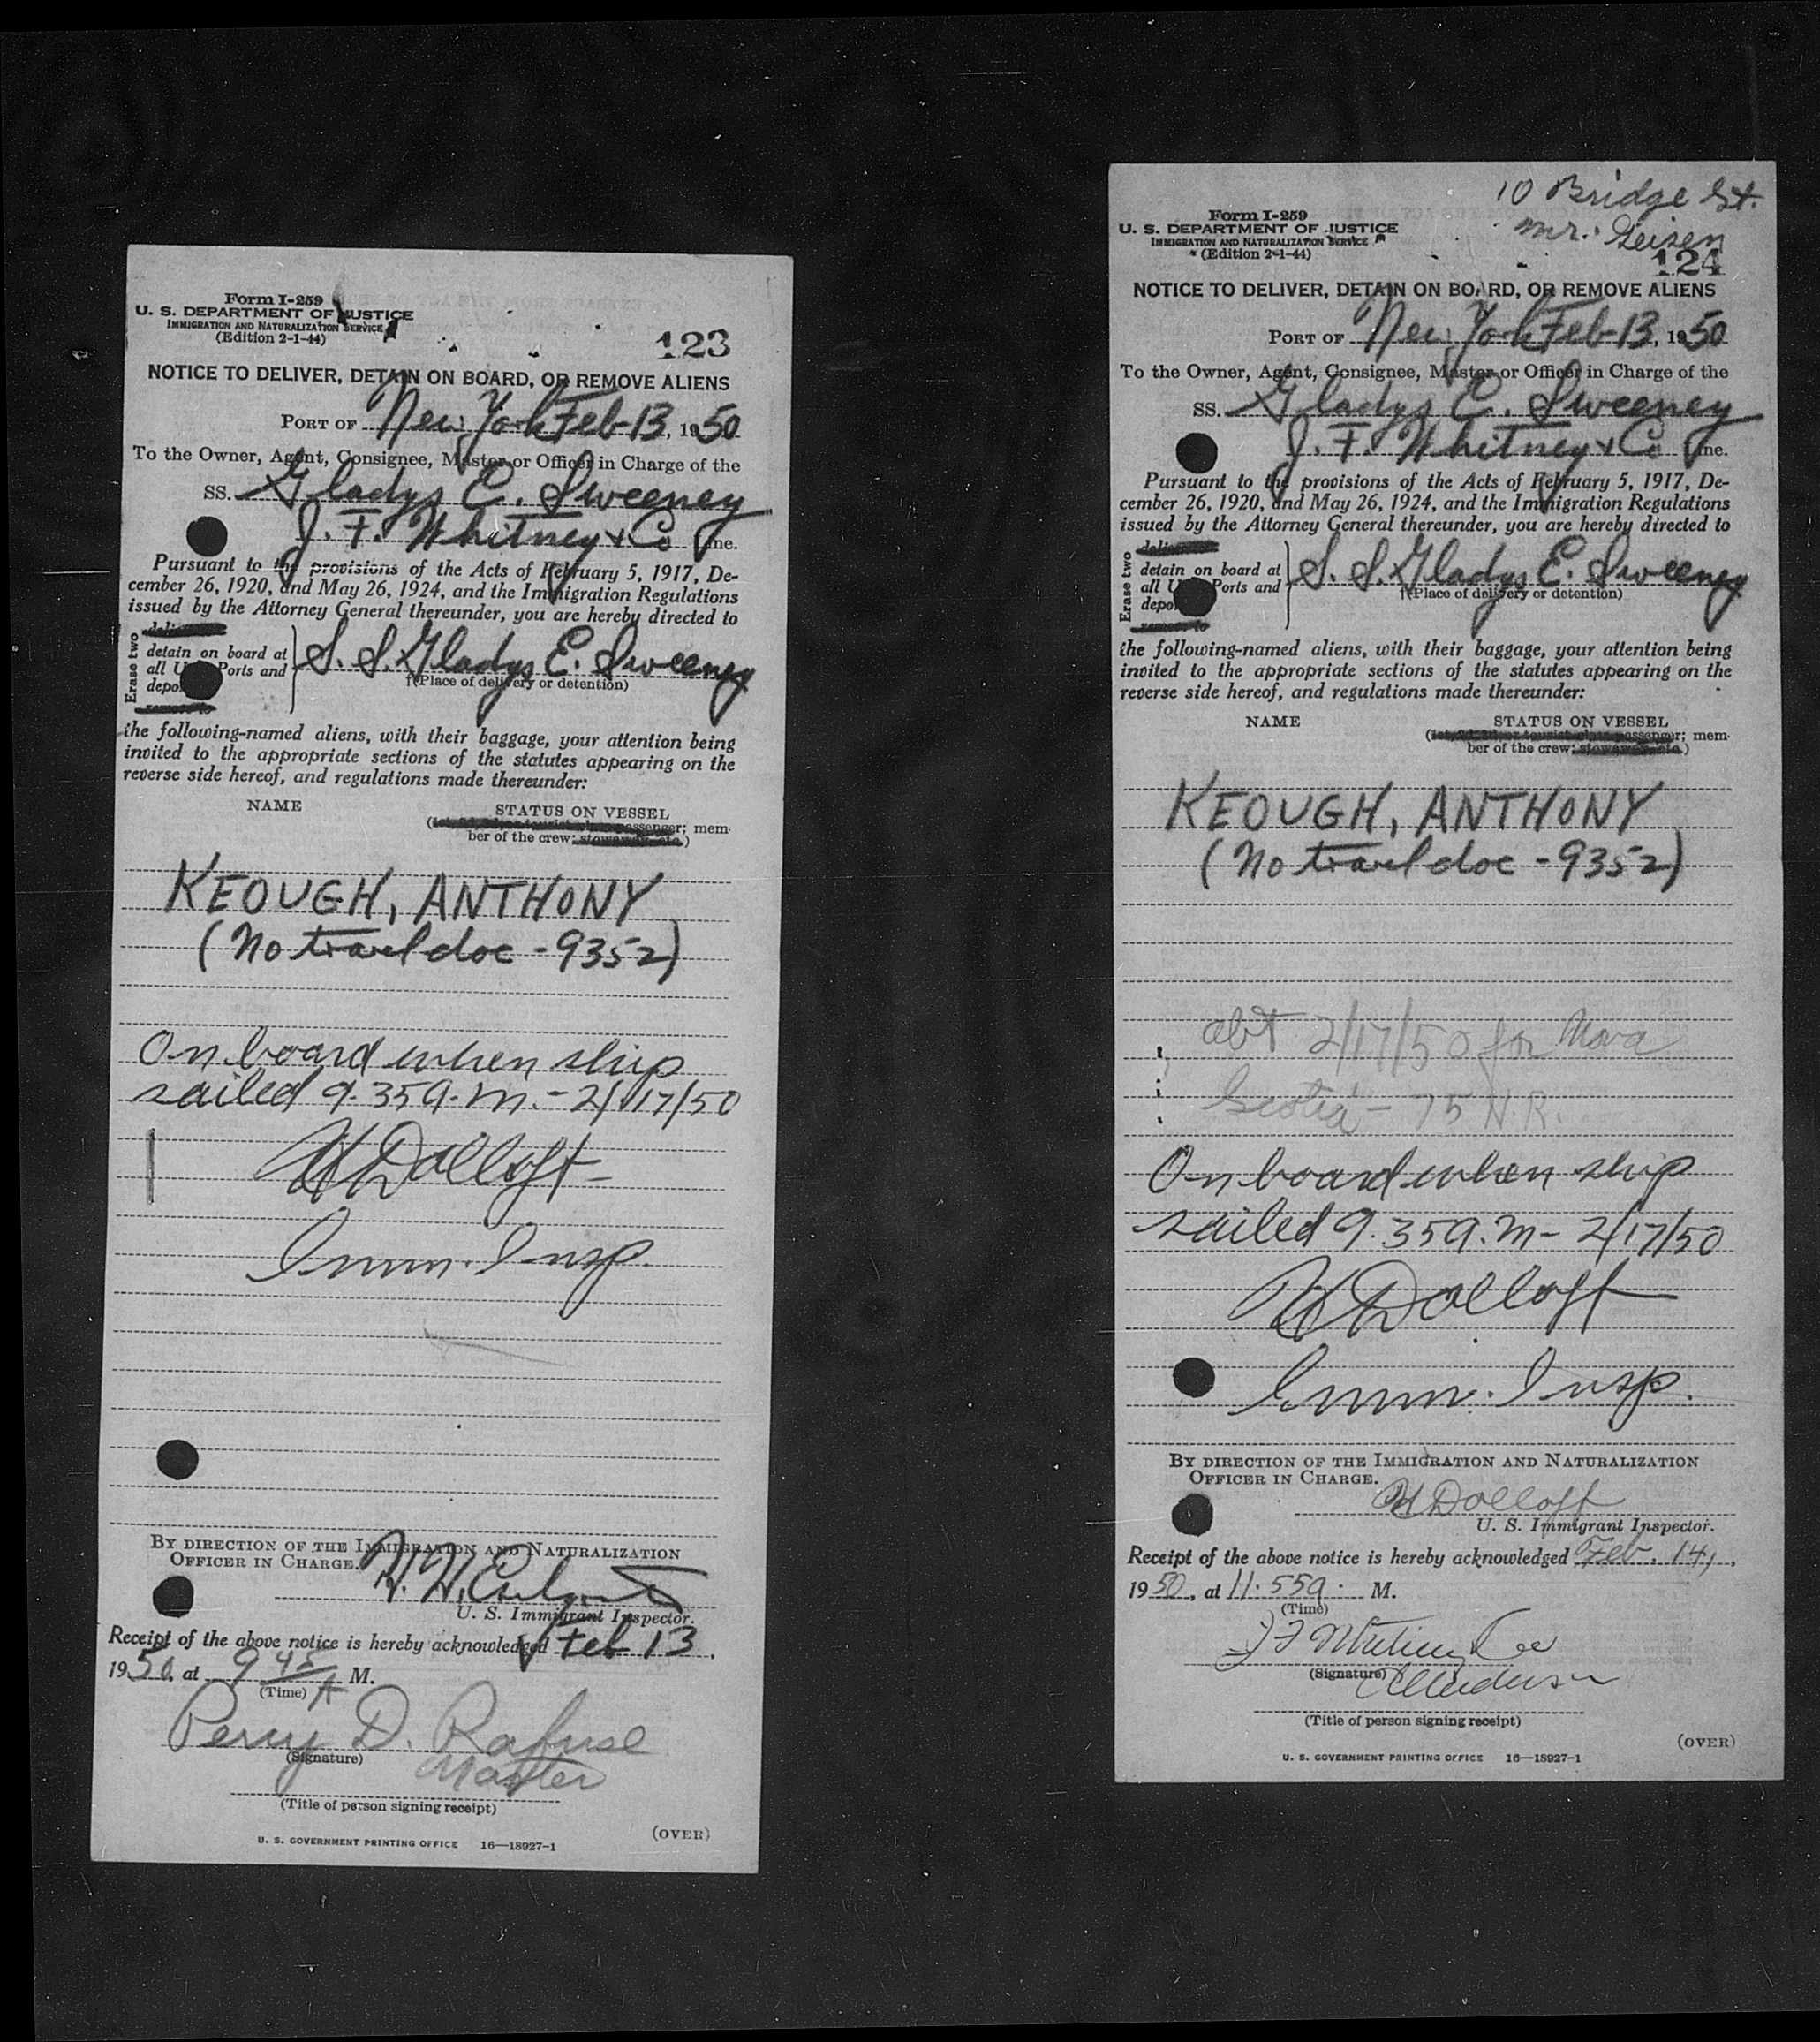 Form I-259
U. S. DEPARTMENT OF JUSTICE
IMMIGRATION AND NATURALIZATION SERVICE
(Edition 2-1-44)
123
NOTICE TO DELIVER, DETAIN ON BOARD, OR REMOVE ALIENS
PORT OF New York Feb-13, 1950
To the Owner, Agent, Consignee, Master or Officer in Charge of the
SS. Gladys E. Sweeney
J. F. Whitney & Co Line.
Pursuant to the provisions of the Acts of February 5, 1917, De-
cember 26, 1920, and May 26, 1924, and the Immigration Regulations
issued by the Attorney General thereunder, you are hereby directed to
Erase two
detain on board at
all U Ports and
depo
S. S. Gladys E. Sweeney
(Place of delivery or detention)
the following-named aliens, with their baggage, your attention being
invited to the appropriate sections of the statutes appearing on the
reverse side hereof, and regulations made thereunder:
NAME STATUS ON VESSEL
(1st, 2d, 3d, or tourist class passenger; mem-
ber of the crew; stowaway, etc.)
KEOUGH, ANTHONY
(No travel doc - 9352)
On board when ship
sailed 9.35 a.m. - 2/17/50
H Dolloff
Imm. Insp.
BY DIRECTION OF THE IMMIGRATION AND NATURALIZATION
OFFICER IN CHARGE.
U. S. Immigrant Inspector.
Receipt of the above notice is hereby acknowledged Feb 13,
1950, at 9 45 A M.
(Time)
Percy D. Rafuse
(Signature)
Master
(Title of person signing receipt)
(OVER)
U. S. GOVERNMENT PRINTING OFFICE 16—18927-1
10 Bridge St.
Mr. Geisen
Form I-259
U. S. DEPARTMENT OF JUSTICE
IMMIGRATION AND NATURALIZATION SERVICE
(Edition 2-1-44)
124
NOTICE TO DELIVER, DETAIN ON BOARD, OR REMOVE ALIENS
PORT OF New York Feb-13, 1950
To the Owner, Agent, Consignee, Master or Officer in Charge of the
SS. Gladys E. Sweeney
J. F. Whitney & Co Line.
Pursuant to the provisions of the Acts of February 5, 1917, De-
cember 26, 1920, and May 26, 1924, and the Immigration Regulations
issued by the Attorney General thereunder, you are hereby directed to
Erase two
detain on board at
all U Ports and
depo
S. S. Gladys E. Sweeney
(Place of delivery or detention)
the following-named aliens, with their baggage, your attention being
invited to the appropriate sections of the statutes appearing on the
reverse side hereof, and regulations made thereunder:
NAME STATUS ON VESSEL
(1st, 2d, 3d, or tourist class passenger; mem-
ber of the crew; stowaway, etc.)
KEOUGH, ANTHONY
(No travel doc - 9352)
abt 2/17/50 for Nova
Scotia - 75 N.R.
On board when ship
sailed 9.35 a.m - 2/17/50
H Dolloff
Imm. Insp.
BY DIRECTION OF THE IMMIGRATION AND NATURALIZATION
OFFICER IN CHARGE.
H Dolloff
U. S. Immigrant Inspector.
Receipt of the above notice is hereby acknowledged Feb. 14,
1950, at 11.55 a. M.
(Time)
J F Whitney & Co
(Signature)
(Title of person signing receipt)
(OVER)
U. S. GOVERNMENT PRINTING OFFICE 16—18927-1